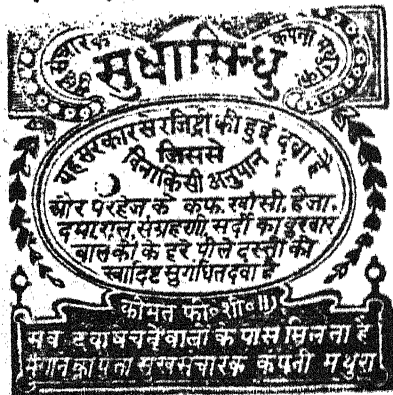 सुखसंचारक कंपनी मथुराका
सुधासिन्धु
यह सरकारसे रजिष्ट्री की हुई दवा है
जिससे
बिनाकिसी अनुपान
और परहेज के कफ, खाँसी, हैजा,
दमा, शूल, संग्रहणी, सर्दी का बुखार
बालकों के हरे, पीले दस्तों की
स्वादिष्ट सुगंधित दवा है
कीमत फी॰ शी॰ ॥)
सब दवा बेचनेवालों के पास मिलता है
मंगाने का पता सुखसंचारक कंपनी मथुरा